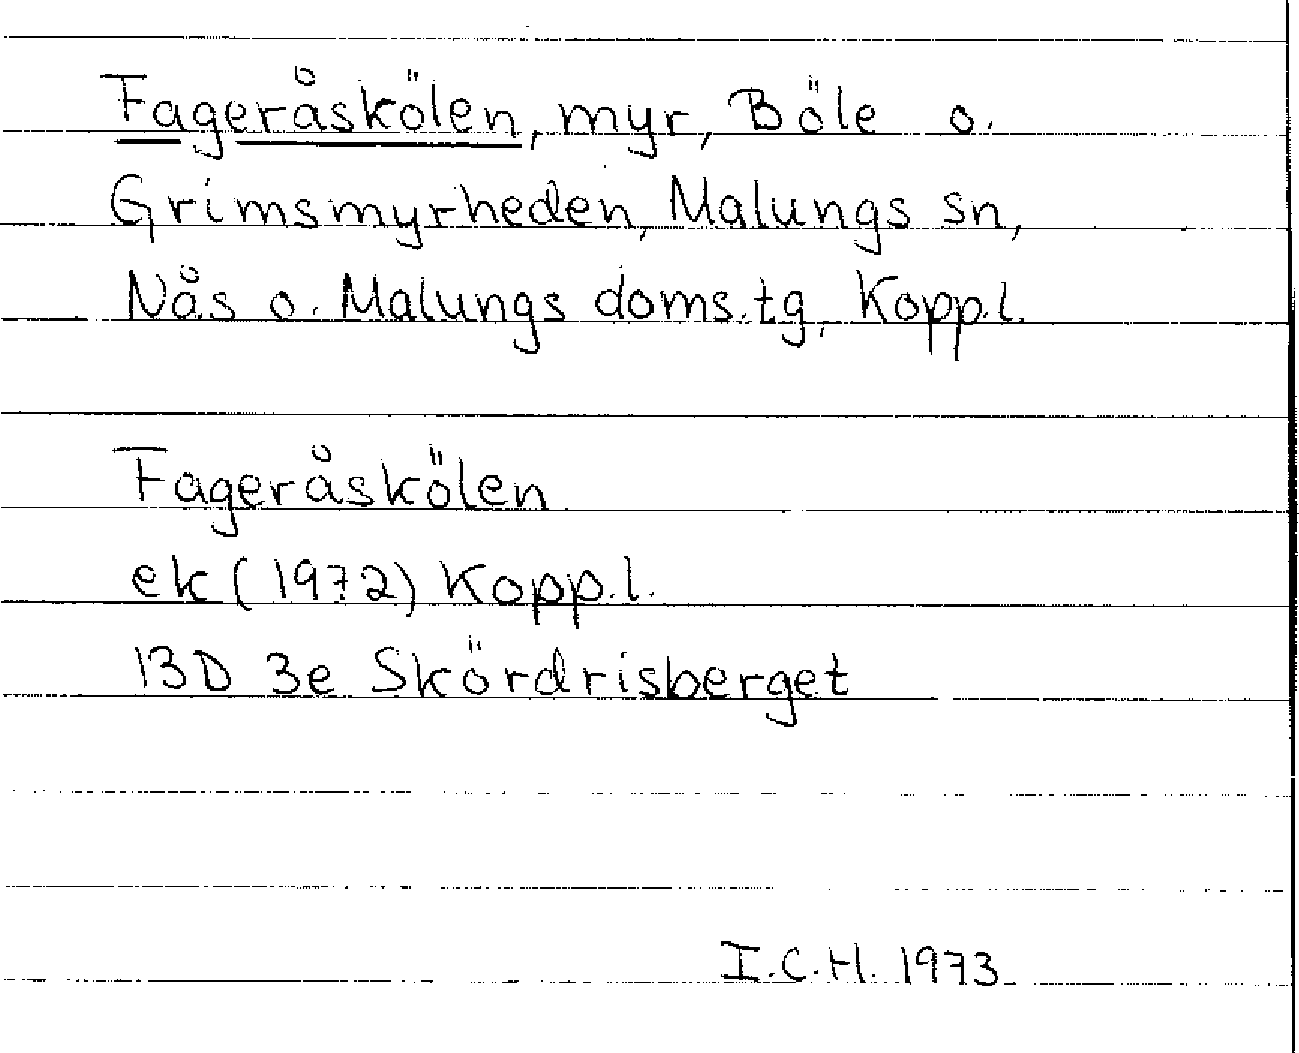 Fageråskölen, myr, Böle o.
Grimsmyrheden, Malungs sn,
Nås o. Malungs doms.tg, Kopp.l.
Fageråskölen
ek (1972) Kopp.l.
13D 3e Skördrisberget
I.C.H. 1973